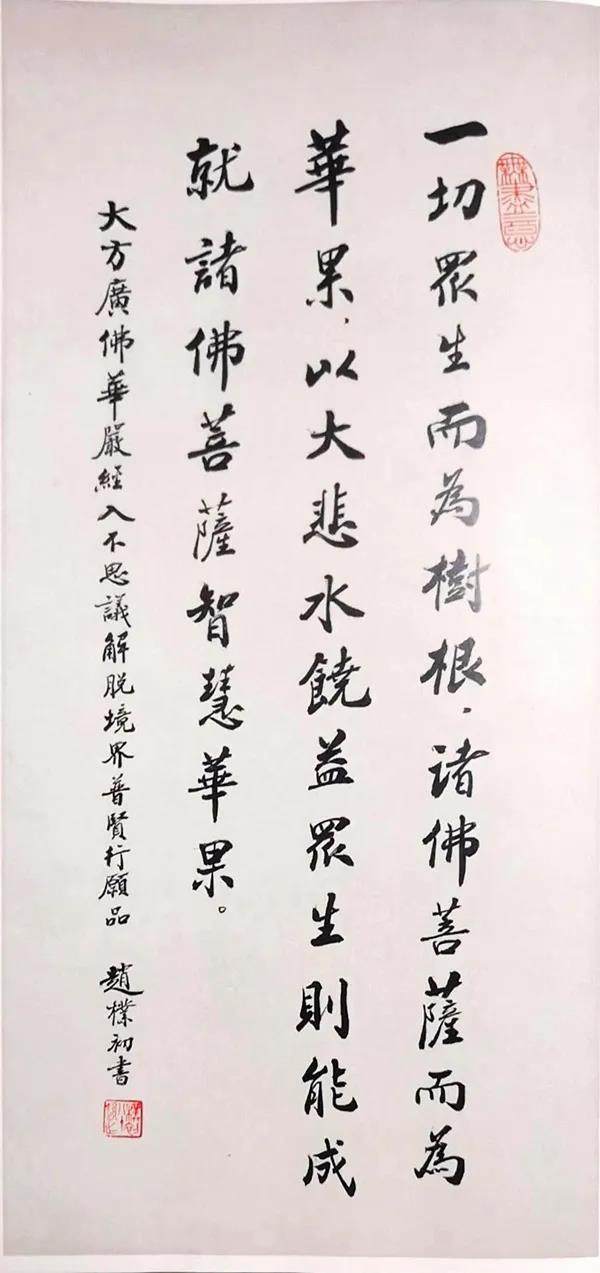 一切眾生而為樹根、諸佛菩薩而為
華果、以大悲水饒益眾生則能成
就諸佛菩薩智慧華果。
大方廣佛華嚴經入不思議解脫境界普賢行願品 趙樸初書